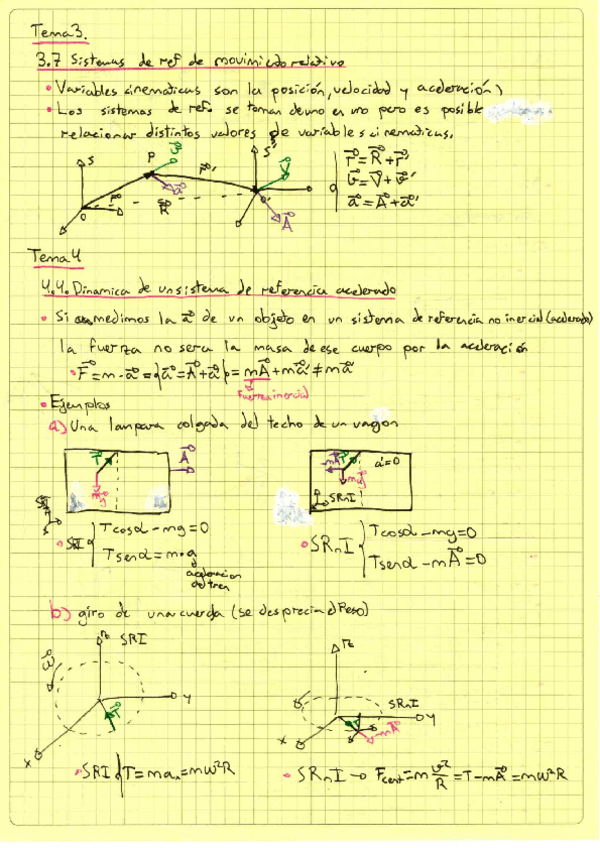 Tema 3.
3.7 Sistemas de ref de movimiento relativo
• Variables cinematicas son la posición, velocidad y aceleración
• Los sistemas de ref. se toman de uno en uno pero es posible
relacionar distintos valores de variables cinematicas.
S P S'
r⃗ r⃗' v⃗ a⃗ V⃗ A⃗ R⃗ O O'
r⃗ = R⃗ + r⃗'
v⃗ = V⃗ + v⃗'
a⃗ = A⃗ + a⃗'
Tema 4
4.4. Dinamica de un sistema de referencia acelerado
• Si medimos la a⃗ de un objeto en un sistema de referencia no inercial (acelerado)
la fuerza no sera la masa de ese cuerpo por la aceleración
• F⃗ = m·a⃗ = {a⃗ = A⃗ + a⃗'} = mA⃗ + ma⃗' ≠ ma⃗'
Fuerza inercial
• Ejemplos
a) Una lampara colgada del techo de un vagon
T⃗ A⃗ mg⃗
-mA⃗ T⃗ mg⃗ a'=0 SRnI
• SRI { Tcosα - mg = 0
Tsenα = m·a
aceleracion
del tren
• SRnI { Tcosα - mg = 0
Tsenα - mA⃗ = 0
b) giro de una cuerda (se desprecia el Peso)
z SRI ω⃗ T⃗ x y
z SRnI T -mA⃗ x y
• SRI { T = maₙ = mω²R
• SRnI → Fcent = m v²/R = T - mA⃗ = mω²R